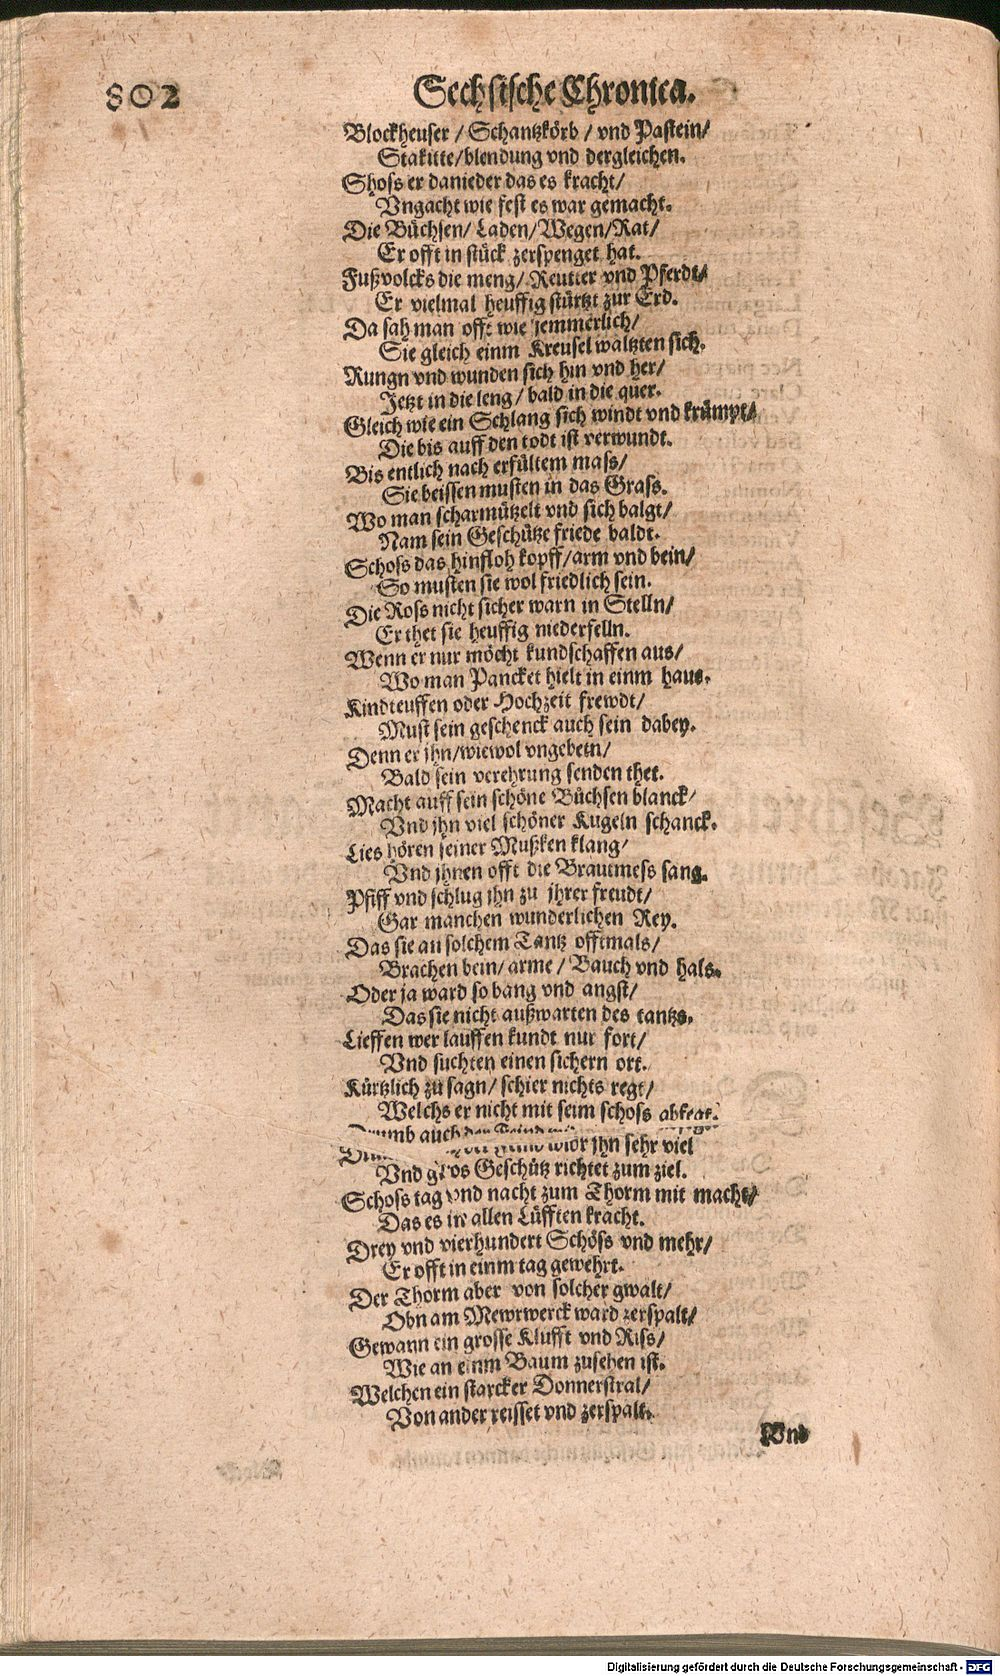 802
Sechsische Chronica.
Blockheuser / Schantzkörb / vnd Pastein/
Stakitte/blendung vnd dergleichen.
Shoss er danieder das es kracht/
Vngacht wie fest es war gemacht.
Die Büchsen/ Laden/ Wegen/ Rat/
Er offt in stück zerspenget hat.
Fußvolcks die meng/ Reutter vnd Pferdt/
Er vielmal heuffig stürtzt zur Erd.
Da sah man offt wie jemmerlich/
Sie gleich einm Kreusel waltzten sich.
Rungn vnd wunden sich hin vnd her/
Jetzt in die leng/ bald in die quer.
Gleich wie ein Schlang sich windt vnd krümpt/
Die bis auff den todt ist verwundt.
Bis entlich nach erfültem mass/
Sie beissen musten in das Grass.
Wo man scharmützelt vnd sich balgt/
Nam sein Geschütze friede baldt.
Schoss das hinfloh kopff/arm vnd bein/
So musten sie wol friedlich sein.
Die Ross nicht sicher warn in Stelln/
Er thet sie heuffig niederfelln.
Wenn er nur möcht kundschaffen aus/
Wo man Pancket hielt in einm haus.
Kindteuffen oder Hochzeit frewdt/
Must sein geschenck auch sein dabey.
Denn er jhn/wiewol vngebetn/
Bald sein verehrung senden thet.
Macht auff sein schöne Büchsen blanck/
Vnd jhn viel schöner Kugeln schanck.
Lies hören seiner Mußken klang/
Vnd jhnen offt die Brautmess sang.
Pfiff vnd schlug jhn zu jhrer freudt/
Gar manchen wunderlichen Rey.
Das sie an solchem Tantz offtmals/
Brachen bein/ arme / Bauch vnd hals.
Oder ja ward so bang vnd angst/
Das sie nicht außwarten des tantzs.
Lieffen wer lauffen kundt nur fort/
Vnd suchten einen sichern ort.
Kürtzlich zu sagn/ schier nichts regt/
Welchs er nicht mit seim schoss abfegt.
Drumb auch der Feind wior jhn sehr viel
Vnd gros Geschütz richtet zum ziel.
Schoss tag vnd nacht zum Thorm mit macht/
Das es in allen Lüfften kracht.
Drey vnd vierhundert Schöss vnd mehr/
Er offt in einm tag gewehrt.
Der Thorm aber von solcher gwalt/
Obn am Mewrwerck ward zerspalt/
Gewann ein grosse Klufft vnd Riss/
Wie an einm Baum zusehen ist.
Welchen ein starcker Donnerstral/
Von ander reisset vnd zerspalt.
Vnd
Digitalisierung gefördert durch die Deutsche Forschungsgemeinschaft - DFG